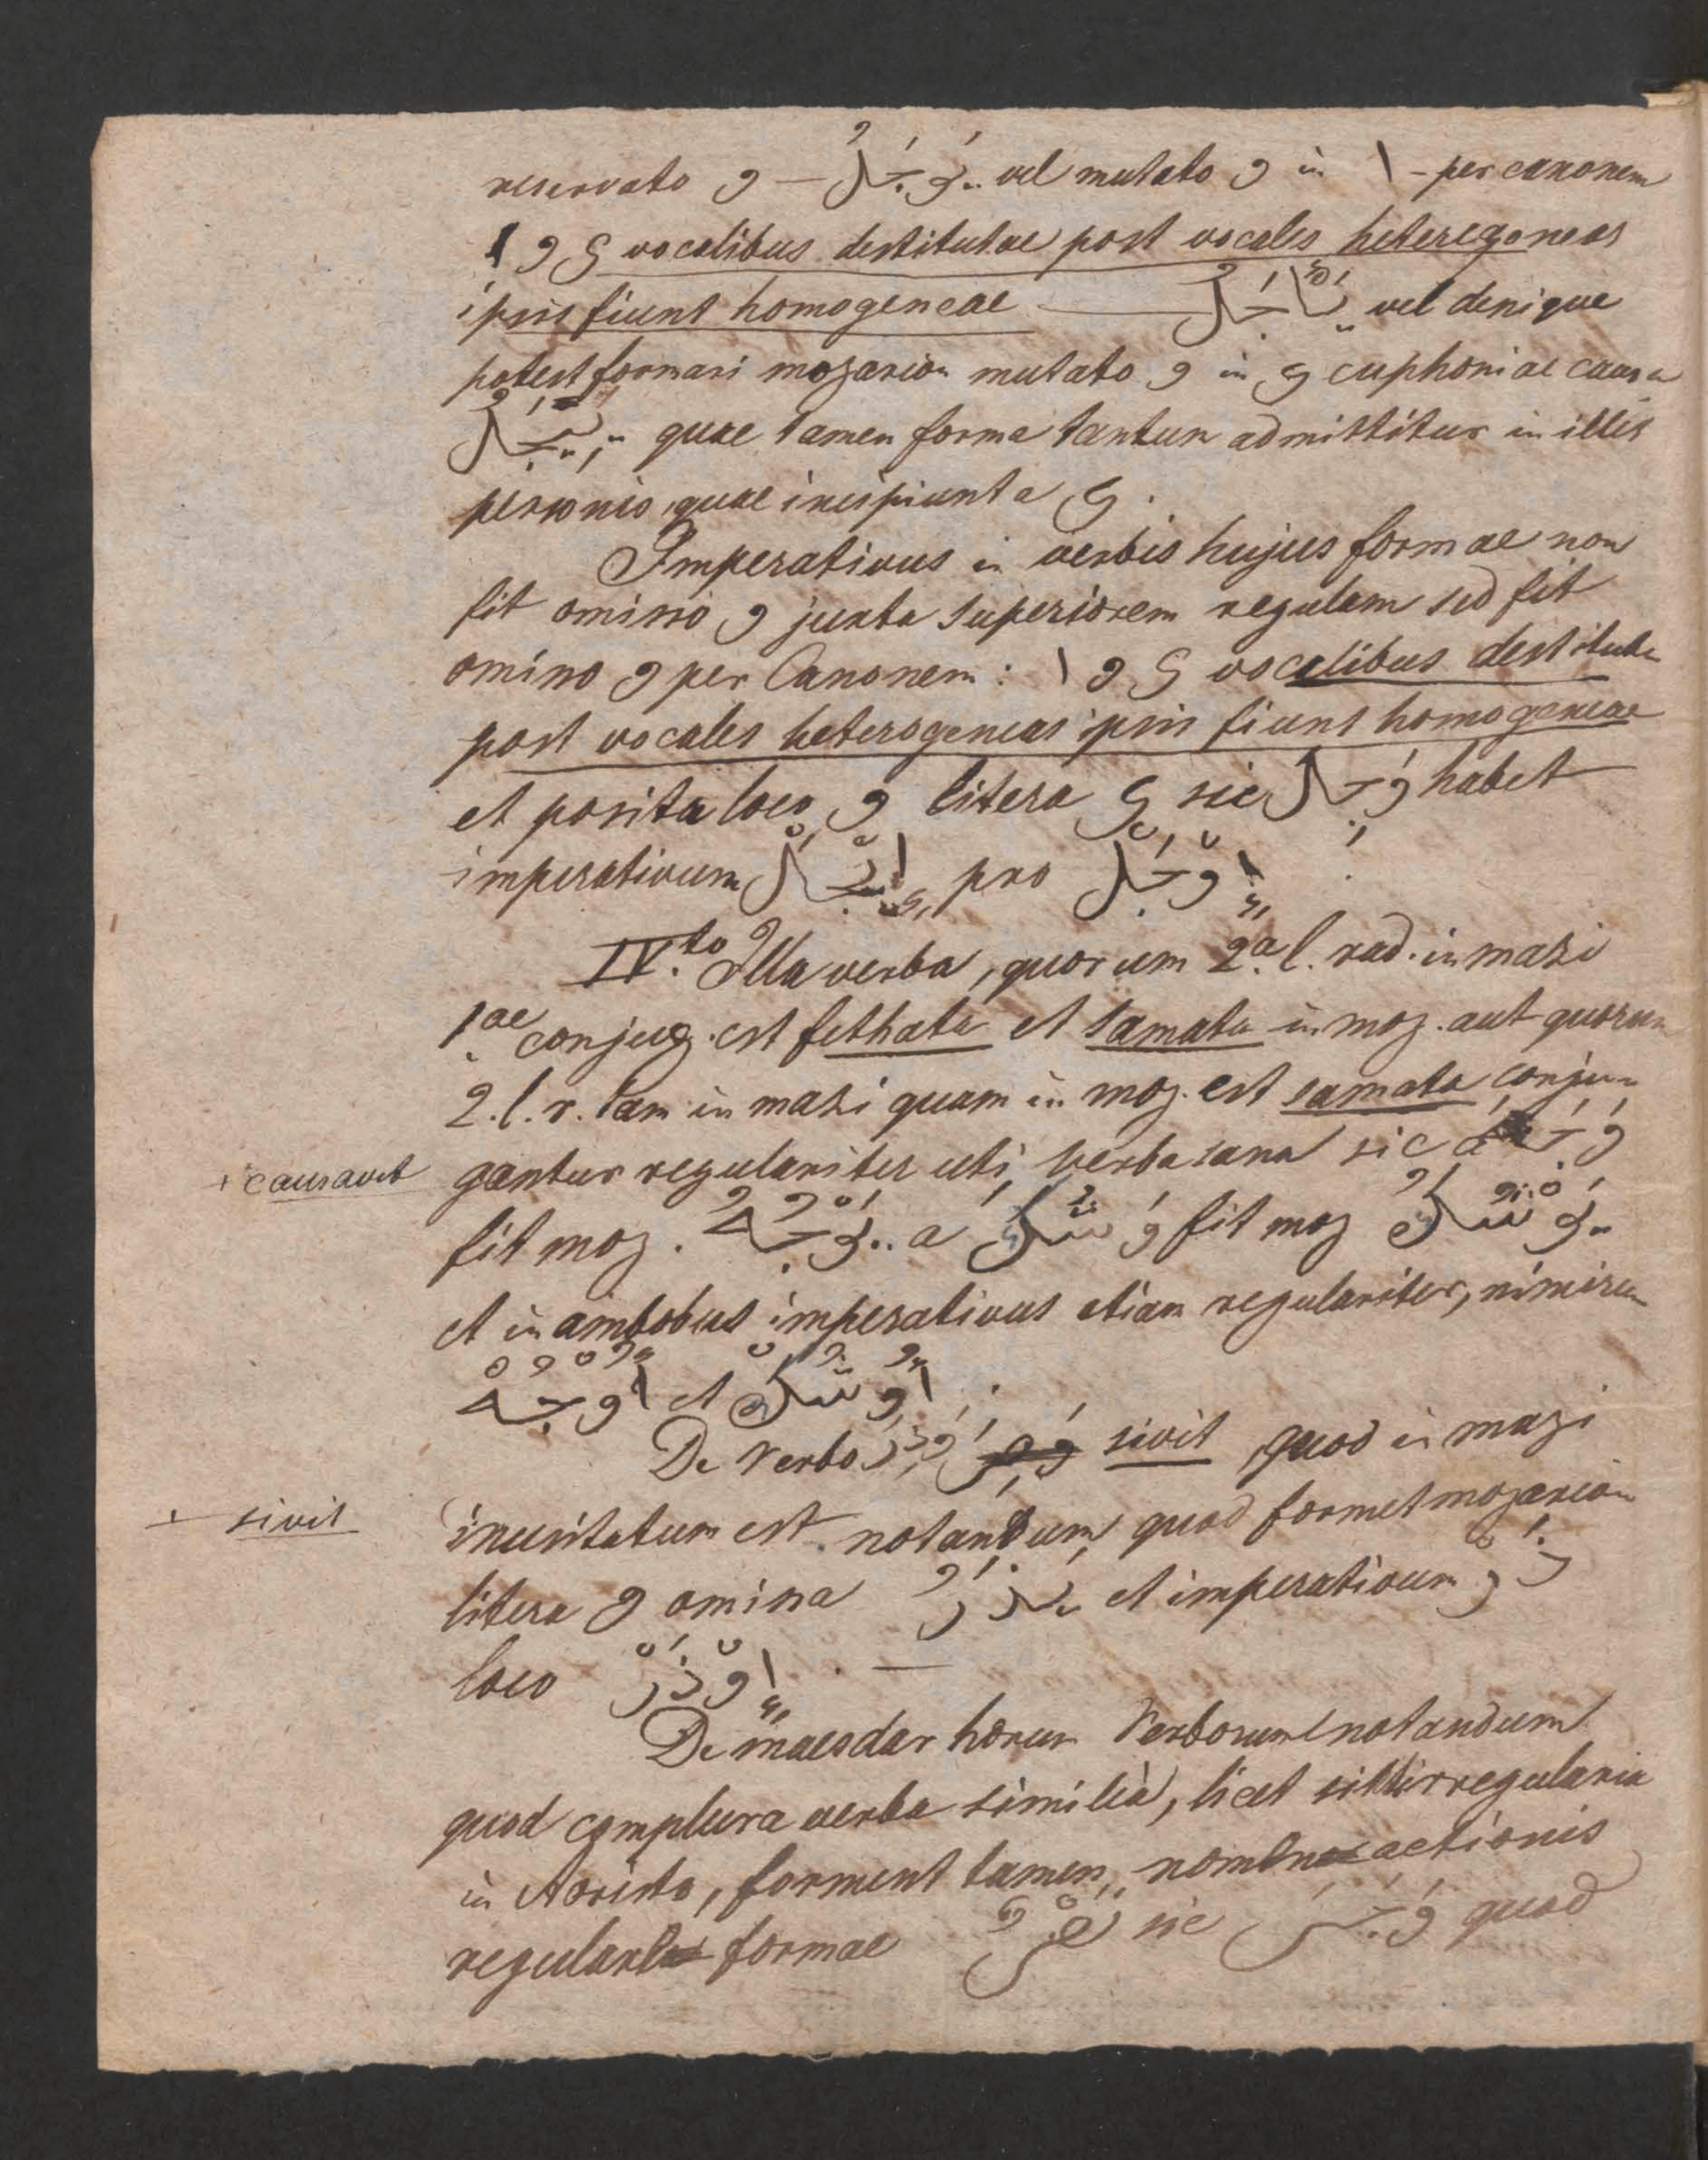 reservato و — يَوْجَلُ vel mutato و in ا - per canonem
ا و ي vocalibus destitutae post vocales heteregoneas
ipsis fiunt homogeneae — يَاجَلُ vel denique
potest formari mozarion mutato و in ي euphoniae causa
يِيجَلُ quae tamen forma tantum admittitur in illis
personis, quae incipiunt a ي.
Imperativus in verbis hujus formae non
fit omisso و juxta superiorem regulam sed fit
omisso و per Canonem: ا و ي vocalibus destituta
post vocales heterogeneas ipsis fiunt homogeneae
et posita loco و litera ي sic وَجِلَ habet
imperativum اِيجَلْ pro اِوْجَلْ
IV.to Illa verba, quorum 2.a l. rad. in mazi
1.ae conjug. est fethata et tamata in moz. aut quorum
2. l. r. tam in mazi quam in moz. est samata conjun
gantur regulariter uti verba sana sic a وَجَهَ
+ causavit
fit moz. يَوْجُهُ a وَشُكَ fit moz يَوْشُكُ
et in ambobus imperativus etiam regulariter, nimirum
اُوجُهْ et اُوشُكْ
De Verbo وَذِرَ sivit quod in mazi
+ sivit
inusitatum est notandum, quod formet mozarion
litera و omissa يَذَرُ et imperativum ذَرْ
loco اِوْذَرْ . —
De maesdar horum Verborum notandum
quod complura verba similia, licet sint irregularia
in Aoristo, forment tamen nomen actionis
regulare formae فَعْلٌ sic quod